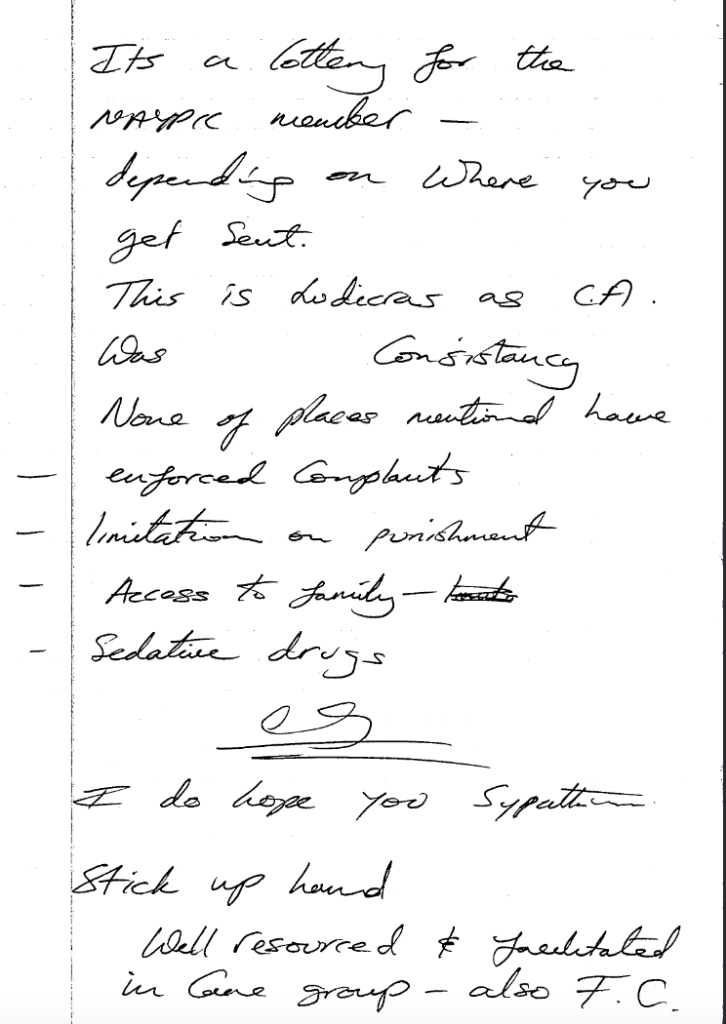 Its a lottery for the
NAYPIC member —
depending on where you
get Sent.
This is Ludicras as C.A.
Was Consistancy
None of places mentiond have
— enforced Complaints
— limitation on punishment
— Access to family —
- Sedative drugs
eg
I do hope you
Stick up hand
Well resourced & facilitated
in Care group – also F.C.